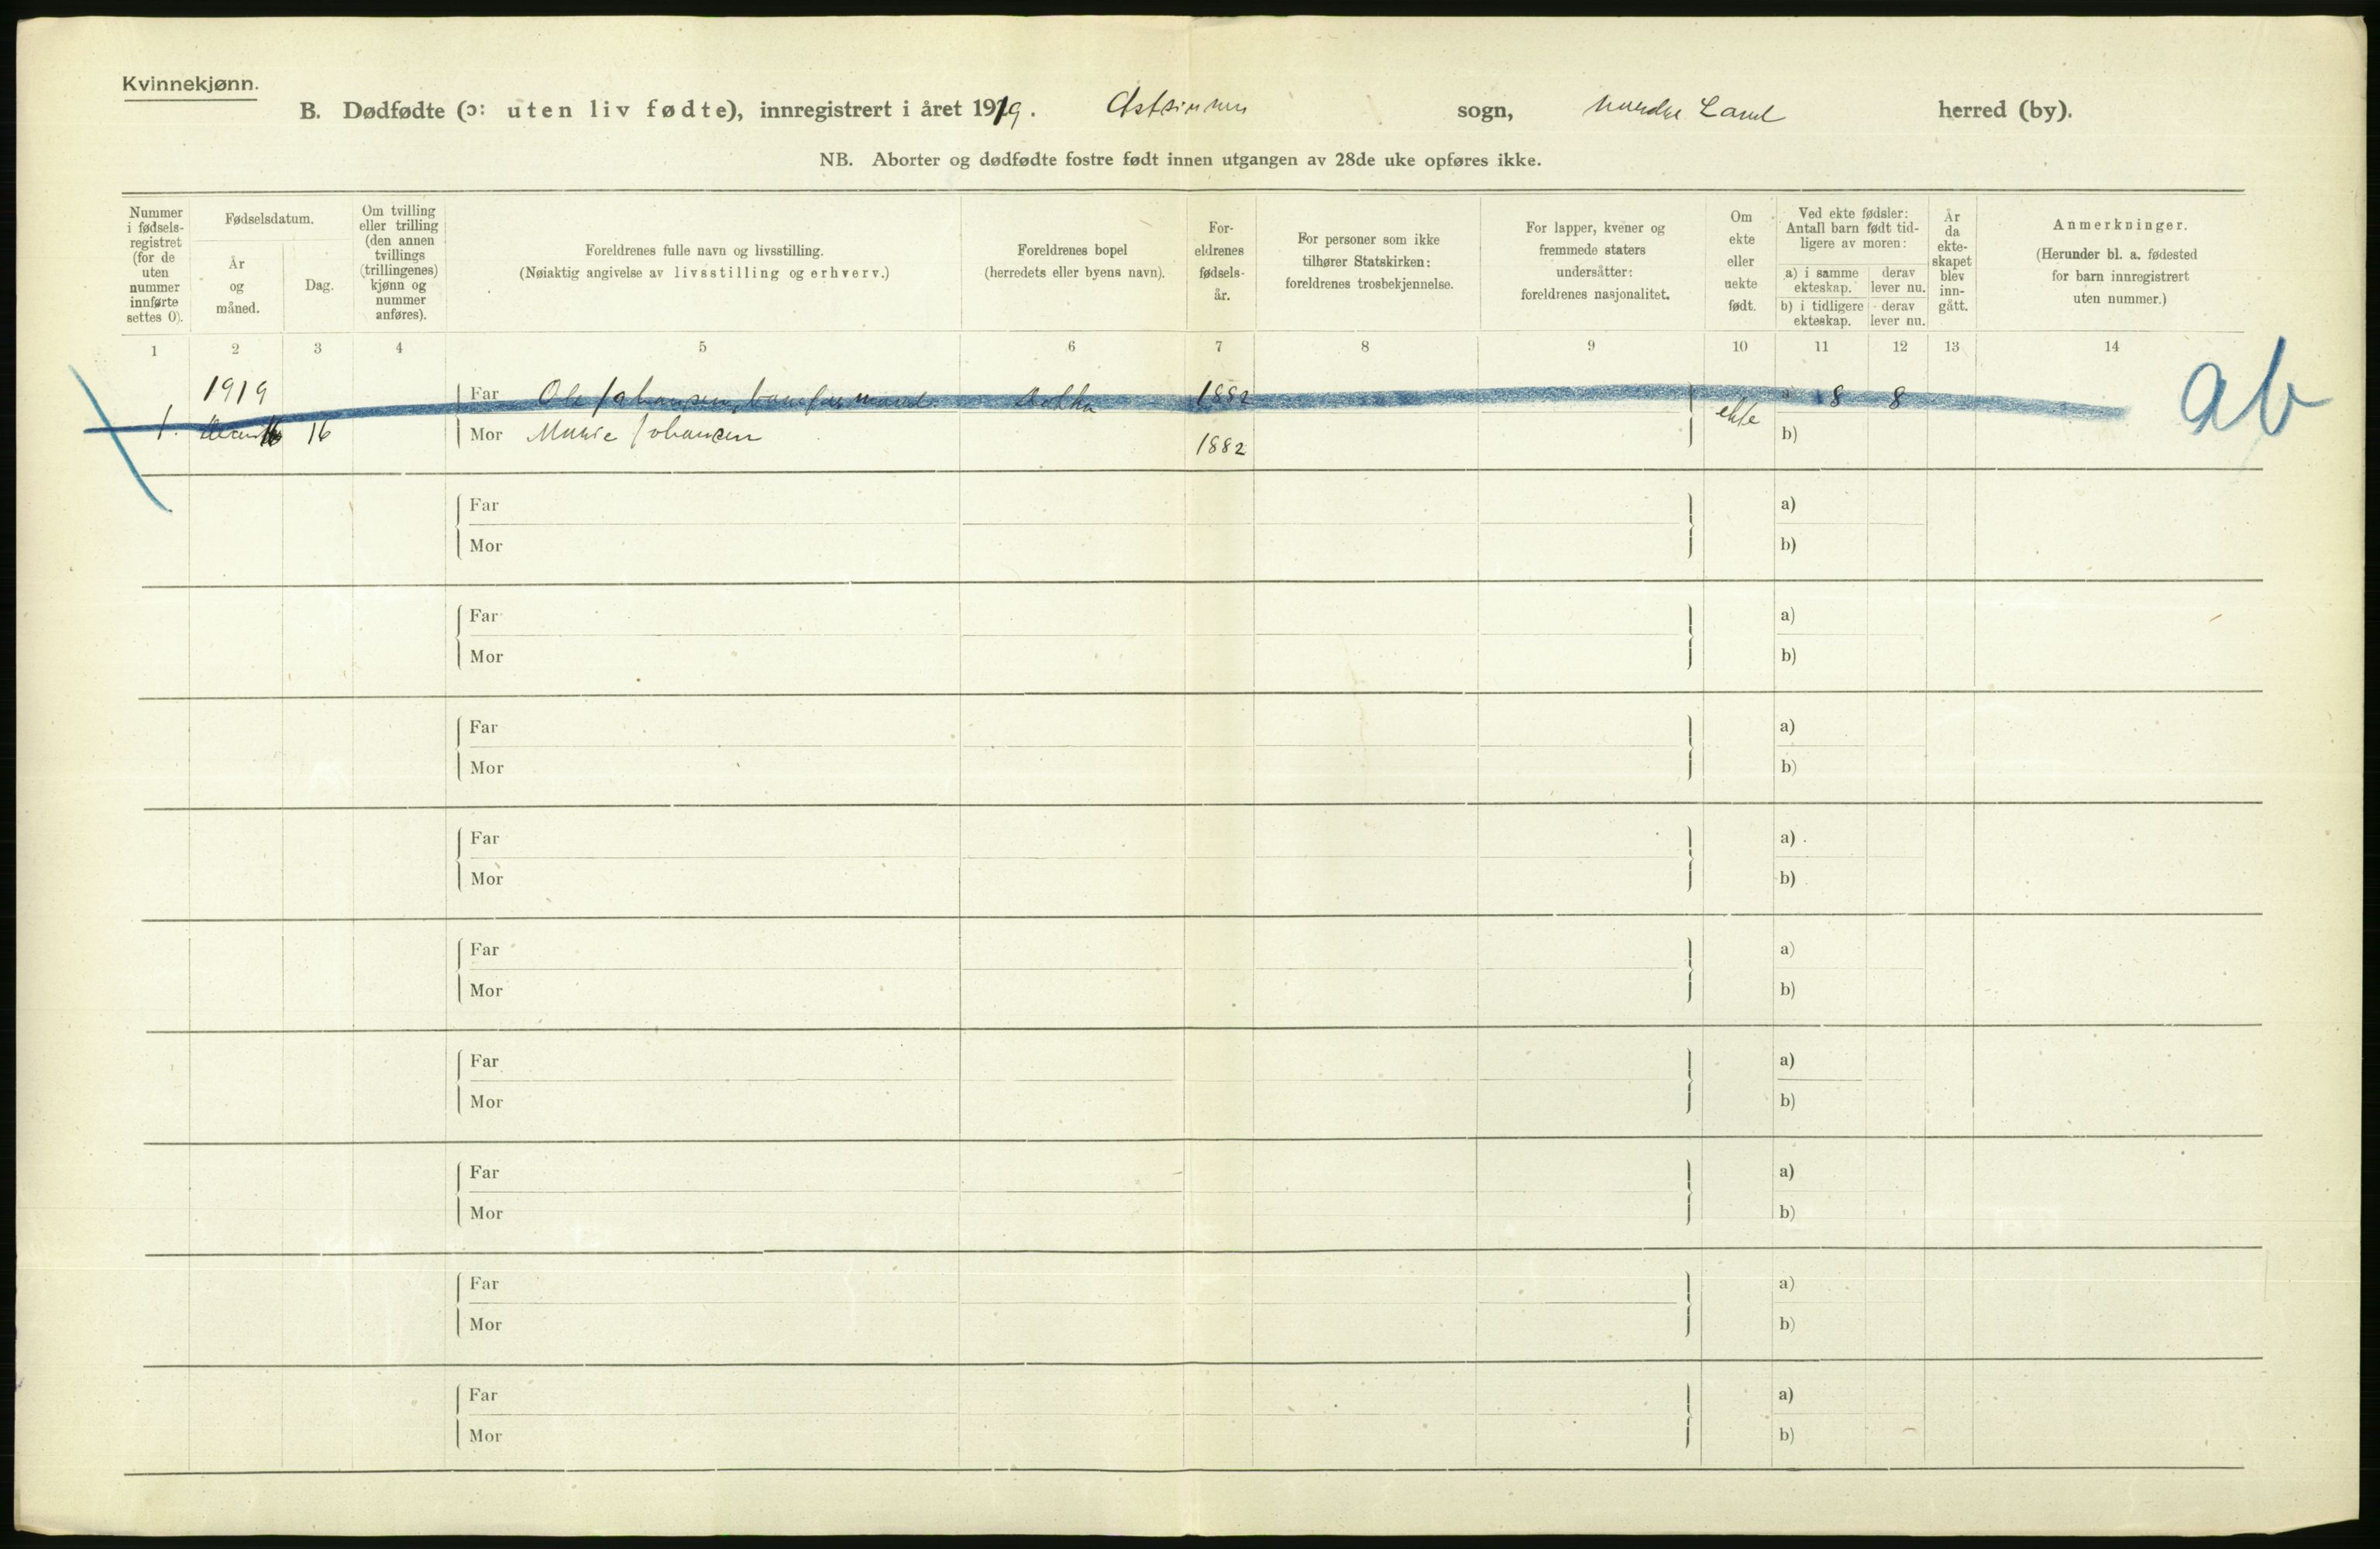 Kvinnekjønn.
B. Dødfødte (ɔ: uten liv fødte), innregistrert i året 1919. Østsinnen sogn, Nordre Land herred (by).
NB. Aborter og dødfødte fostre født innen utgangen av 28de uke opføres ikke.
Nummer i fødsels-registret (for de uten nummer innførte settes 0).
Fødselsdatum.
År og måned.
Dag.
Om tvilling eller trilling (den annen tvillings (trillingenes) kjønn og nummer anføres).
Foreldrenes fulle navn og livsstilling.
(Nøiaktig angivelse av livsstilling og erhverv.)
Foreldrenes bopel
(herredets eller byens navn).
For-eldrenes fødsels-år.
For personer som ikke tilhører Statskirken: foreldrenes trosbekjennelse.
For lapper, kvener og fremmede staters undersåtter: foreldrenes nasjonalitet.
Om ekte eller uekte født.
Ved ekte fødsler: Antall barn født tid-ligere av moren:
a) i samme ekteskap.
derav lever nu.
b) i tidligere ekteskap.
derav lever nu.
År da ekte-skapet blev inn-gått.
Anmerkninger.
(Herunder bl. a. fødested for barn innregistrert uten nummer.)
1 2 3 4 5 6 7 8 9 10 11 12 13 14
1919 Far Ole Johansen, 1882 a) 8 8 ab
1. 16 Mor Marie Johansen 1882 ekte b)
Far a)
Mor b)
Far a)
Mor b)
Far a)
Mor b)
Far a)
Mor b)
Far a)
Mor b)
Far a)
Mor b)
Far a)
Mor b)
Far a)
Mor b)
Far a)
Mor b)